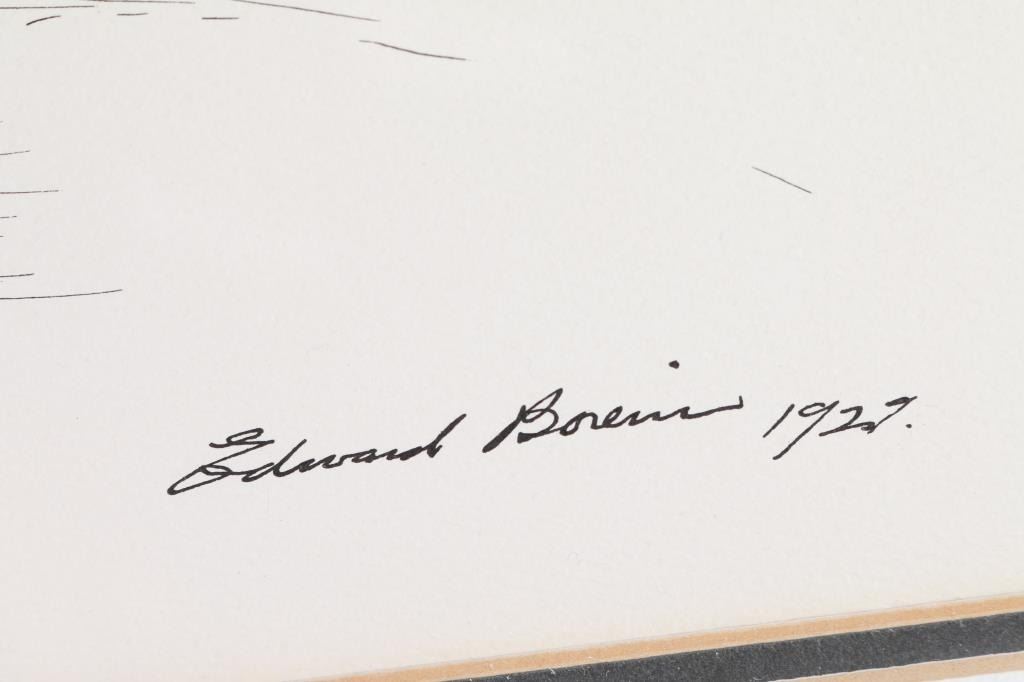 Edward Borein 1927.